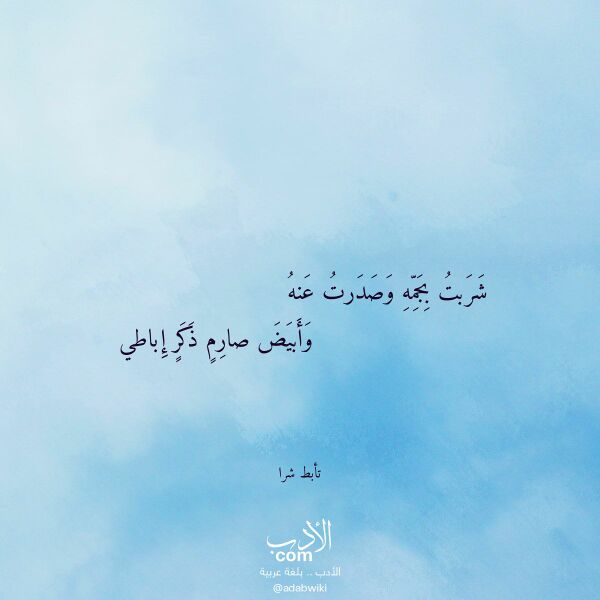 شَرَبتُ بِجَمِّهِ وَصَدَرتُ عَنهُ
وَأَبيَضَ صارِمٍ ذَكَرٍ إِباطي
تأبط شرا
الأدب
com
الأدب .. بلغة عربية
@adabwiki